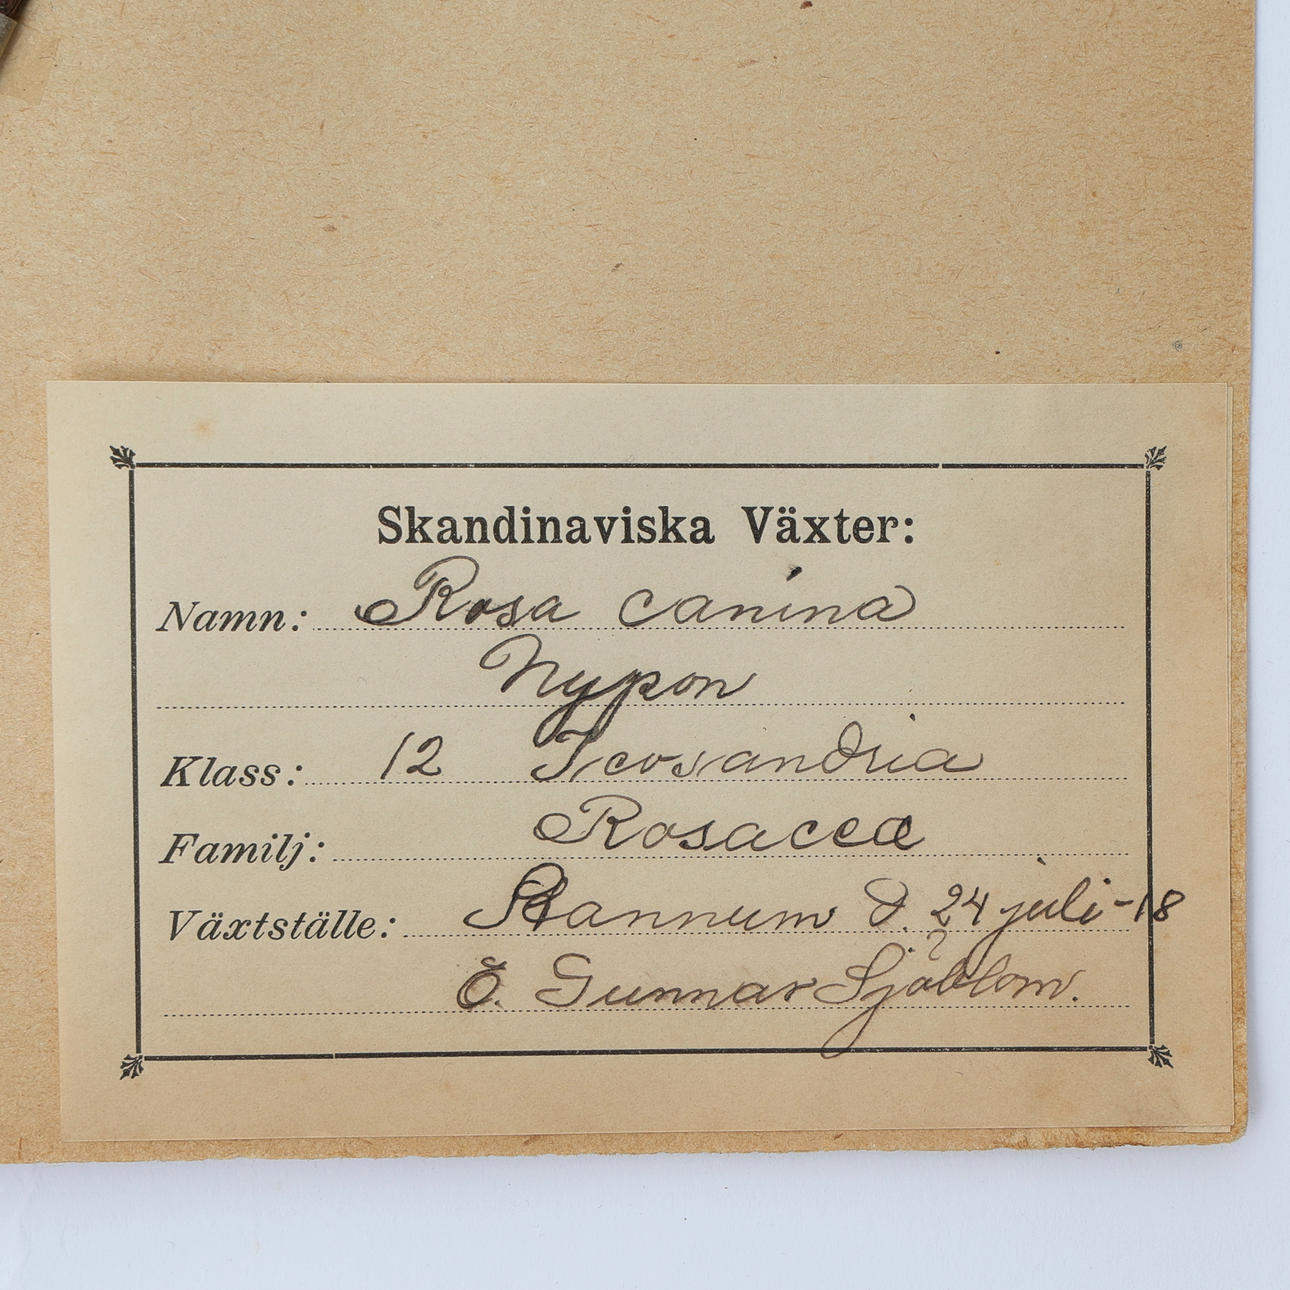 Skandinaviska Växter:
Namn: Rosa canina
Nypon
Klass: 12 Icosandria
Familj: Rosaceæ
Växtställe: Rannum d. 24 juli -18
E. Gunnar Sjöblom.